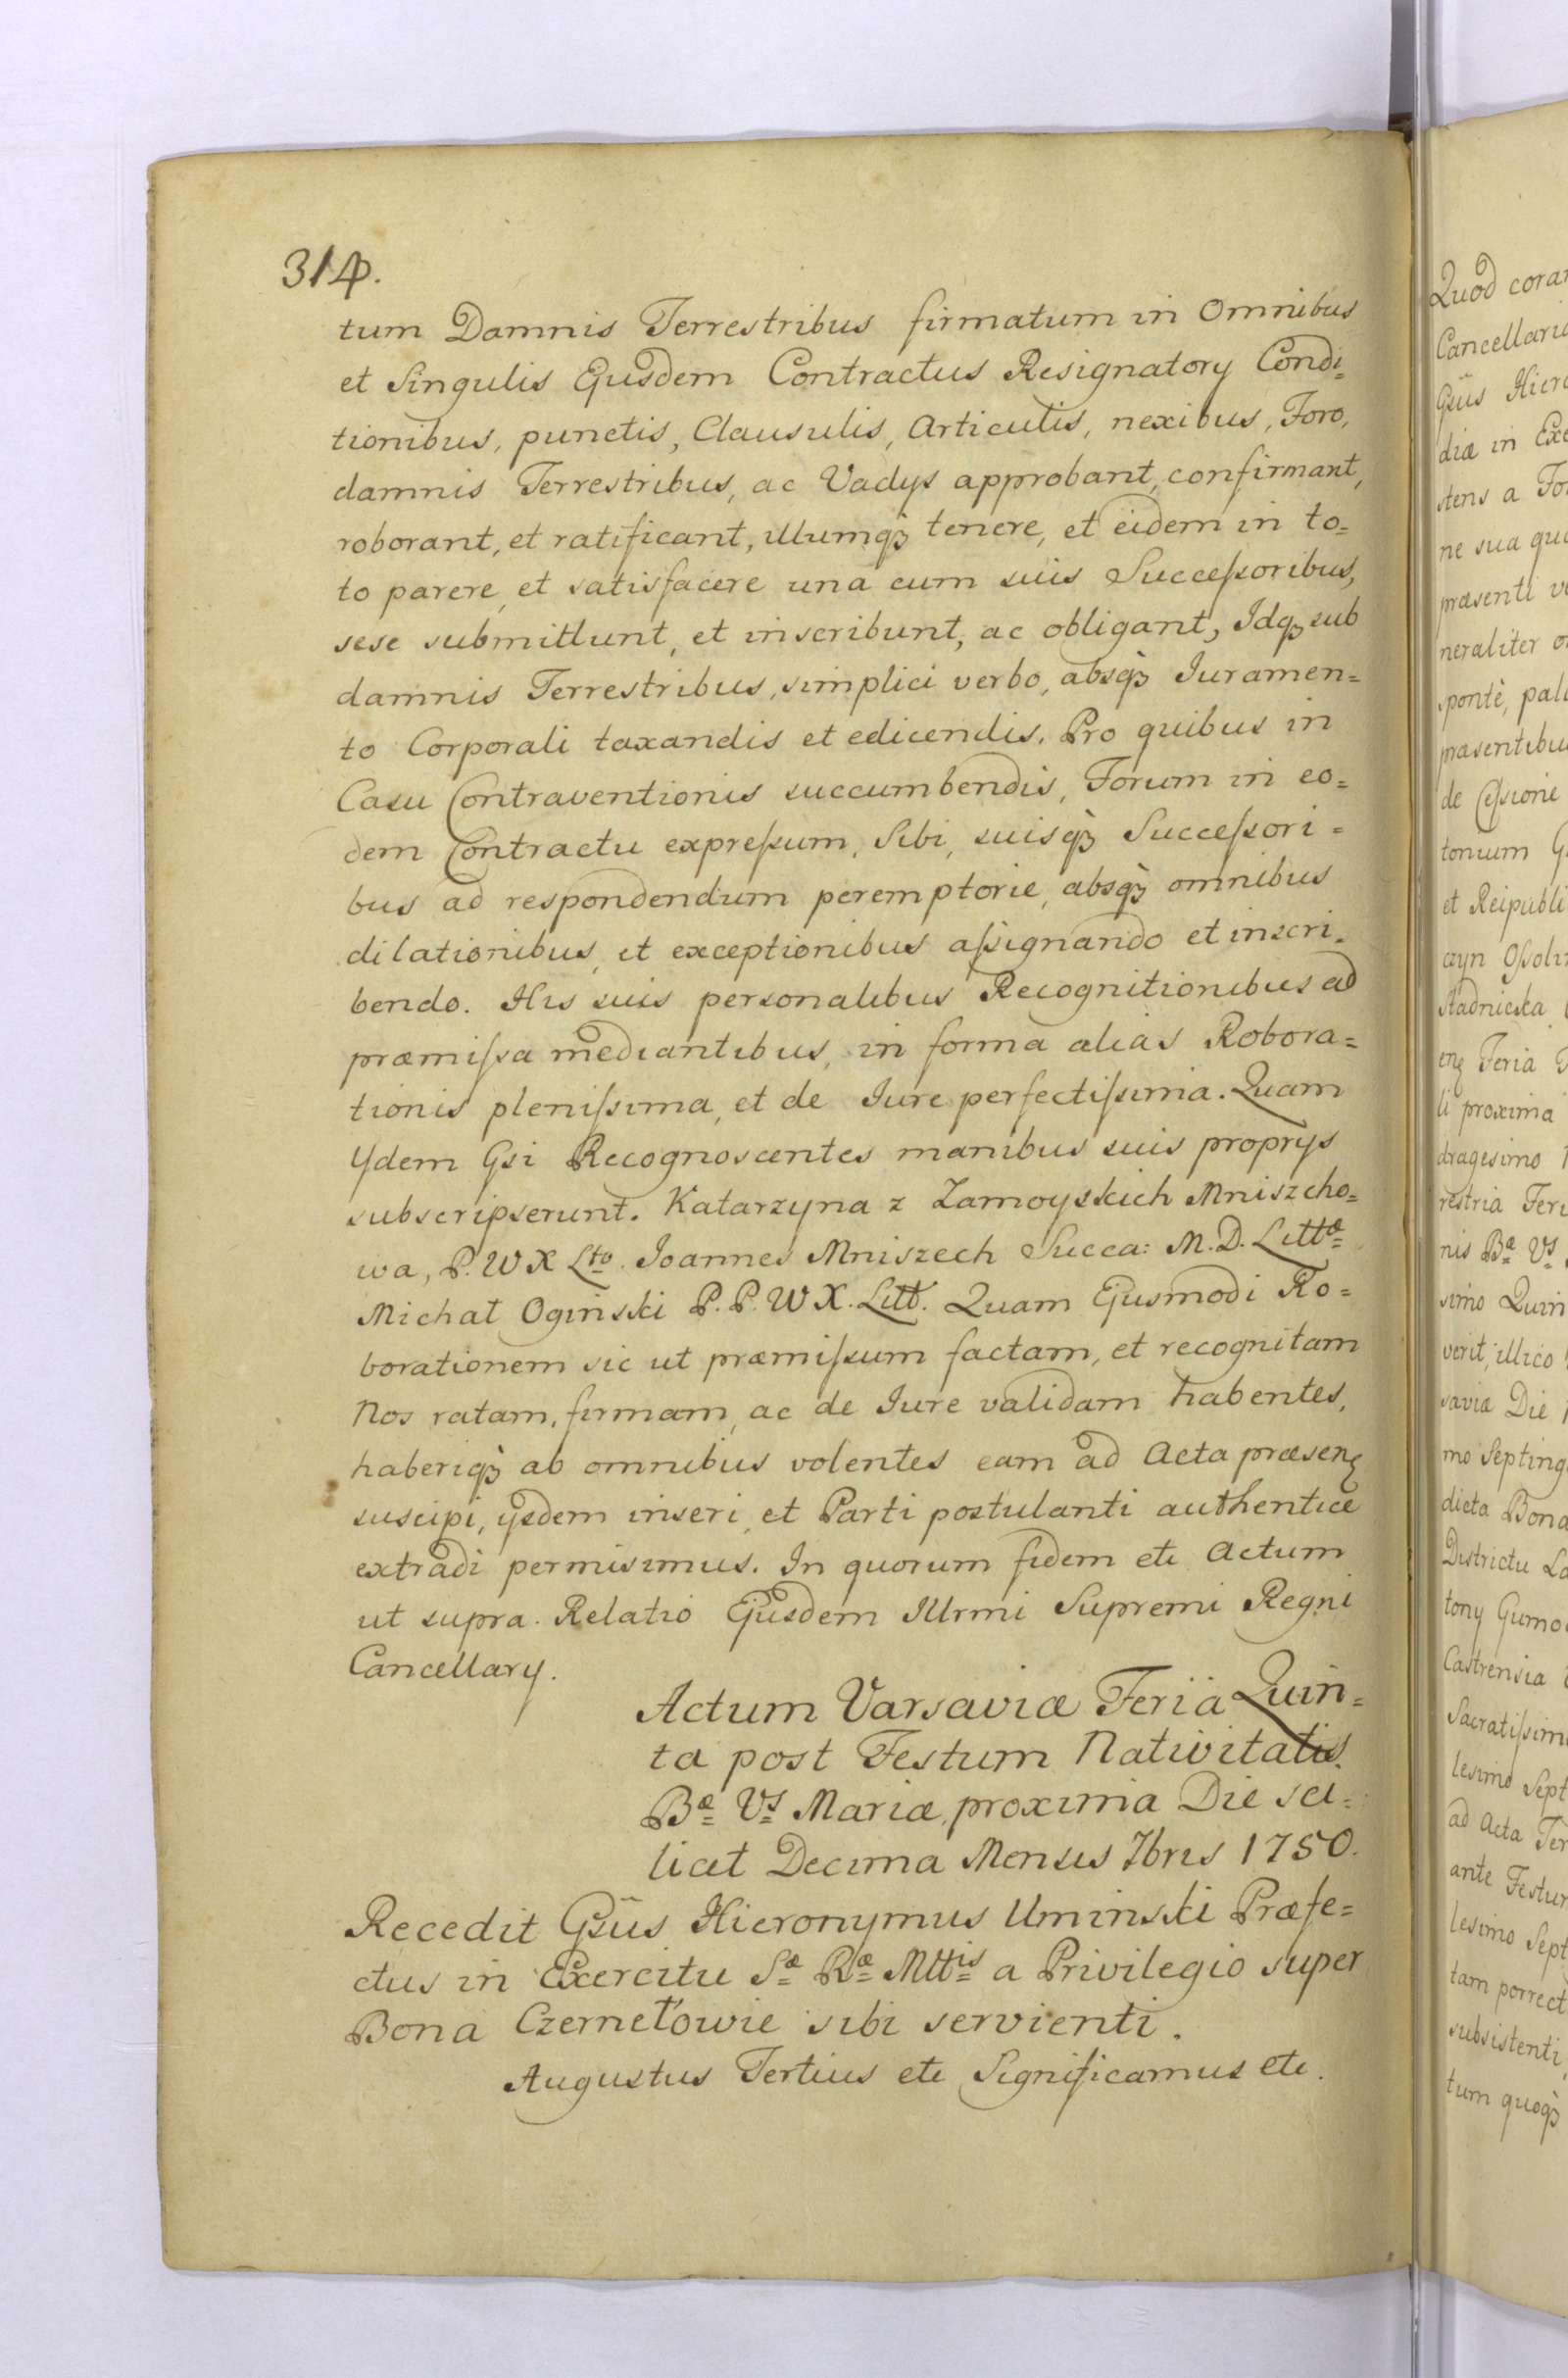 314.
tum Damnis Terrestribus firmatum in Omnibus
et Singulis Ejusdem Contractus Resignatory Condi=
tionibus, punctis, Clausulis, Articulis, nexibus, Foro,
damnis Terrestribus, ac Vadys approbant, confirmant,
roborant, et ratificant, illumqꝫ tenere, et eidem in to=
to parere, et satisfacere una cum suis Succeſsoribus,
sese submittunt, et inscribunt, ac obligant, Idqꝫ sub
damnis Terrestribus, simplici verbo, absqꝫ Iuramen=
to Corporali taxandis et edicendis. Pro quibus in
Casu Contraventionis succumbendis, Forum in eo=
dem Contractu expreſsum, Sibi, suisqꝫ Succeſsori=
bus ad respondendum peremptorie, absqꝫ omnibus
dilationibus, et exceptionibus aſsignando et inscri=
bendo. His suis personalibus Recognitionibus ad
præmiſsa mediantibus, in forma alias Robora=
tionis pleniſsima, et de Iure perfectiſsima. Quam
Ydem Gsi Recognoscentes manibus suis proprys
subscripserunt. Katarzyna z Zamoyskich Mniszcho=
wa, P. W X Lto. Joannes Mniszech Succa: M. D. Littæ
Michał Oginski P. P. W X. Litt. Quam Ejusmodi Ro=
borationem sic ut præmiſsum factam, et recognitam
Nos ratam, firmam, ac de Iure validam habentes,
haberiqꝫ ab omnibus volentes eam ad Acta præsenꝫ
suscipi, ysdem inseri, et Parti postulanti authentice
extradi permisimus. In quorum fidem etc Actum
ut supra. Relatio Ejusdem Illrmi Supremi Regni
Cancellary.
Actum Varsaviæ Feria Quin=
ta post Festum Nativitatis
Bæ Vs Mariæ, proxima Die sci=
licet Decima Mensis 7bris 1750.
Recedit Gsus Hieronymus Uminski Præfe=
ctus in Exercitu Sæ Ræ Mttis a Privilegio super
Bona Czernełowie sibi servienti.
Augustus Tertius etc Significamus etc.
Quod cora
Cancellari
Gsus Hier
diæ in Ex
stens a Fo
ne sua qu
præsenti
neraliter
sponte, pal
præsentibu
de Ceſsione
tonium G
et Reipubli
czyn Oſsoli
Stadnicka
Feria
li proxima
dragesimo
restria Feri
nis Bæ Vs
simo Quin
verit, illico
saviæ Die
mo Septing
dicta Bona
Districtu La
tony Gumo
Castrensia
Sacratiſsim
lesimo Sept
ad Acta Ter
ante Festum
lesimo Sept
tam porrect
subsistenti,
tum quoqꝫ